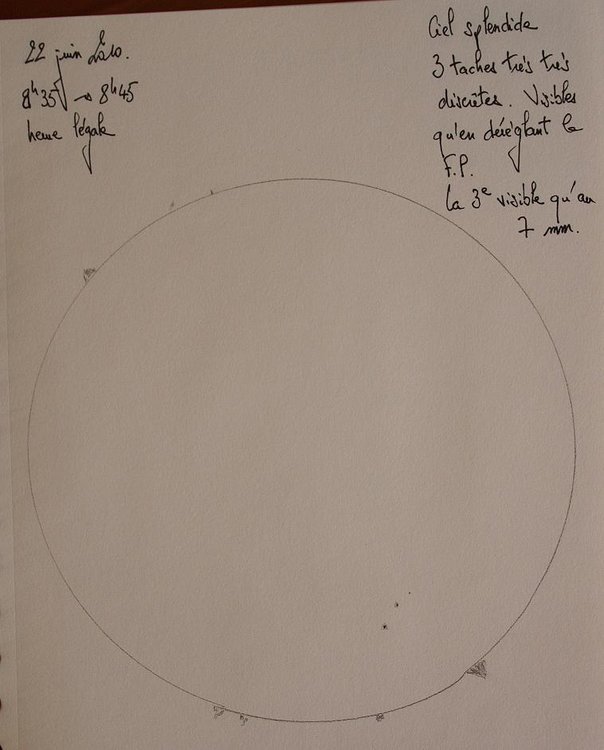 22 juin 2010.
8h35 → 8h45
heure légale
Ciel splendide
3 taches très très
discrètes. Visibles
qu'en déréglant le
F.P.
La 3e visible qu'au
7 mm.